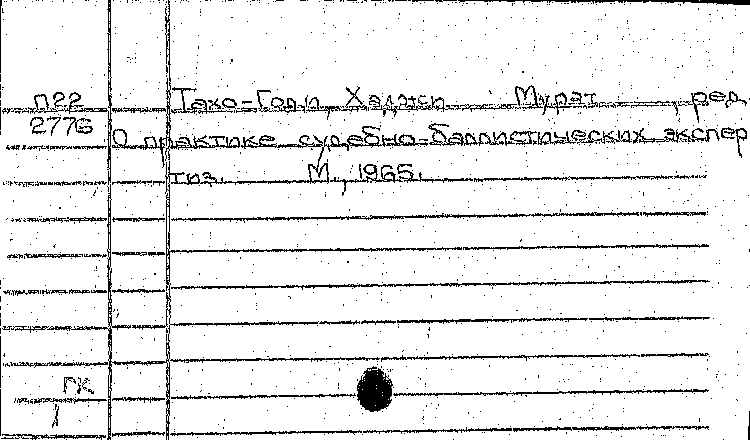 П22 Тахо-Годи, Хаджи Мурат, ред.
2776 О практике судебно-баллистических экспер
тиз. М., 1965.
ГК
1